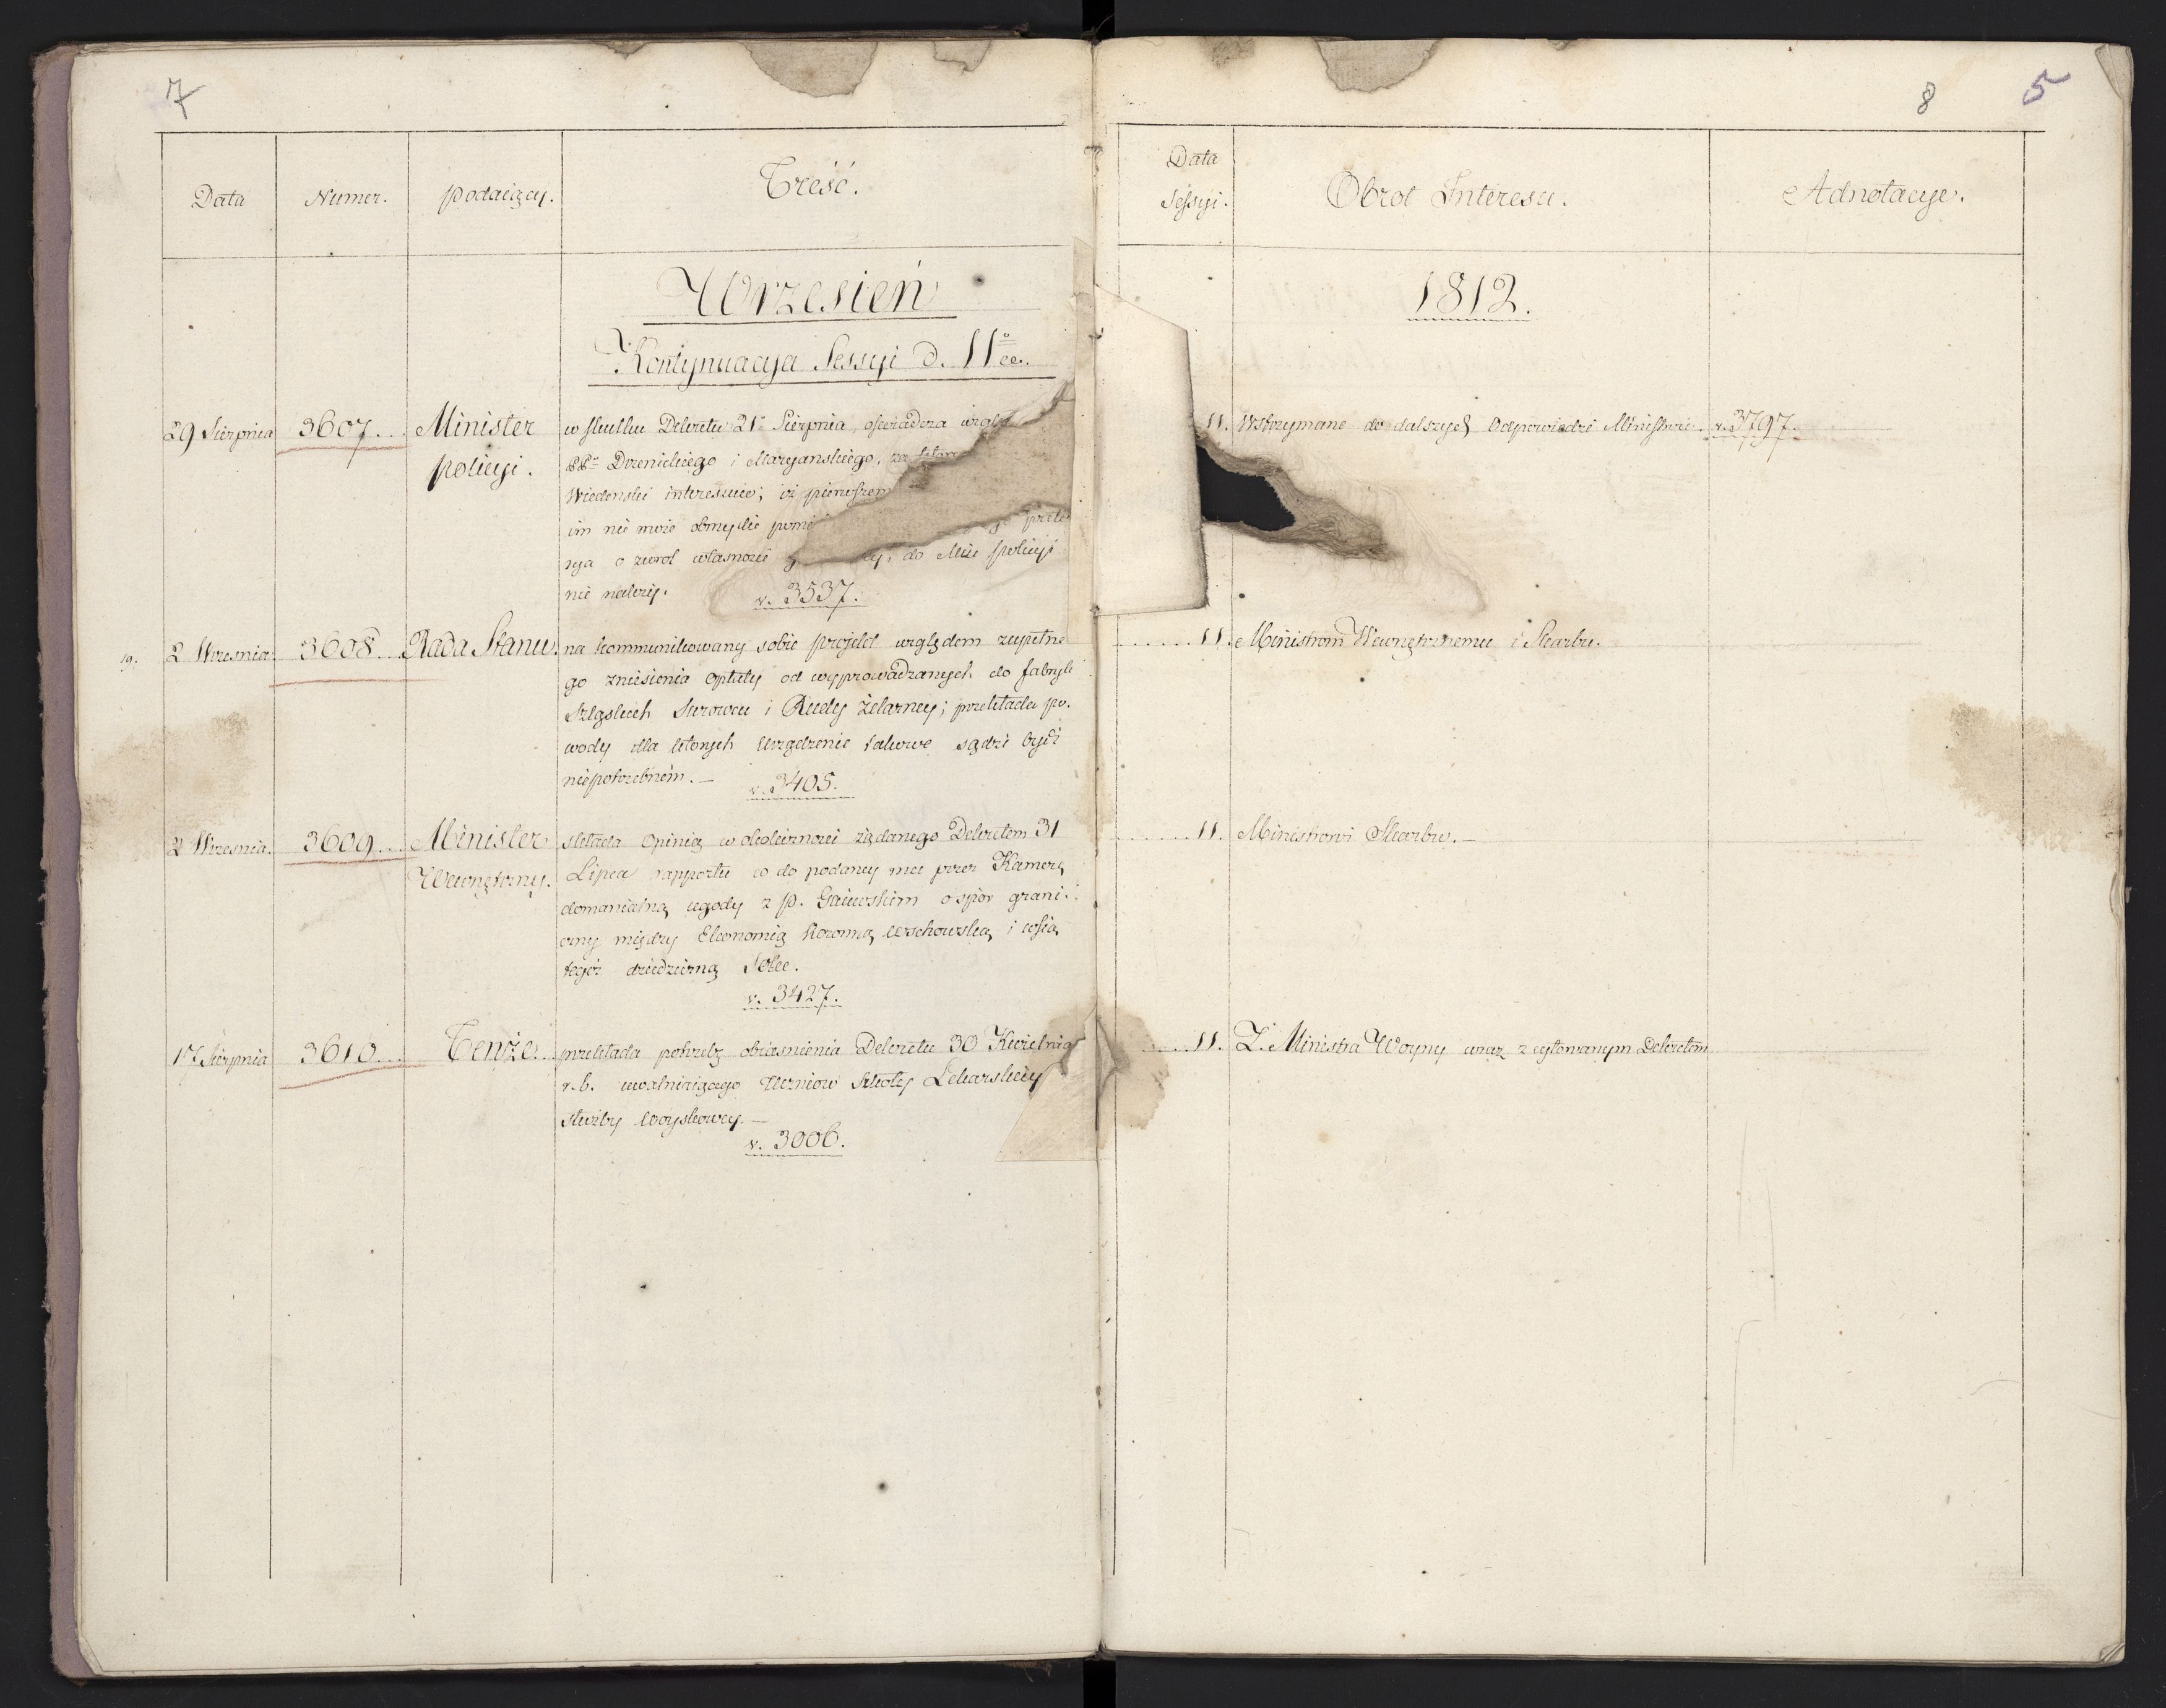 7
Data
Numer.
Podaiący.
Treść.
Wrzesień
Kontynuacya Sessyi d. 11º ee.
29 Sierpnia
3607...
Minister
Policyi.
w skutku Dekretu 21º Sierpnia, oświadcza wzglę
PPº Drzenickiego i Maryanskiego, za
Wiedenski interesuie; iż pierwszem
im nie może obmyslić pomi
sya o zwrot własności do Mra Policyi
nie należy.
v. 3537.
19.
2 Wrzesnia
3608...
Rada Stanu.
na kommunikowany sobie projekt względem zupełne
go zniesienia opłaty od wyprowadzanych do fabryk
Szląskich Surowcu i Rudy żelazney; przekłada po-
wody dla których Urządzenie takowe sądzi być
niepotrzebnem. —
v. 3405.
2 Wrzesnia.
3609...
Minister
Wewnętrzny.
składa Opinią w okoliczności żądanego Dekretem 31
Lipca rapportu co do podaney mu przez Kamerę
domanialną ugody z P. Gaiewskim o spór grani-
czny między Ekonomią Koronną Wschowską i wsią
tegoż dziedziczną Solec.
v. 3427.
17 Sierpnia
3610...
Tenże...
przekłada potrzebę obiasnienia Dekretu 30 Kwietnia
r.b. uwalniaiącego Uczniow Szkoły Lekarskiey
służby Woyskowey. —
v. 3006.
8
5
Data
Sessyi.
Obrot Interesu.
Adnotacye.
1812.
11.
Wstrzymane do dalszych Odpowiedzi Ministrów.
v. 3797.
......11.
Ministrom Wewnętrznemu i Skarbu.
......11.
Ministrowi Skarbu. —
....11.
Z. Ministra Woyny wraz z cytowanym Dekretem